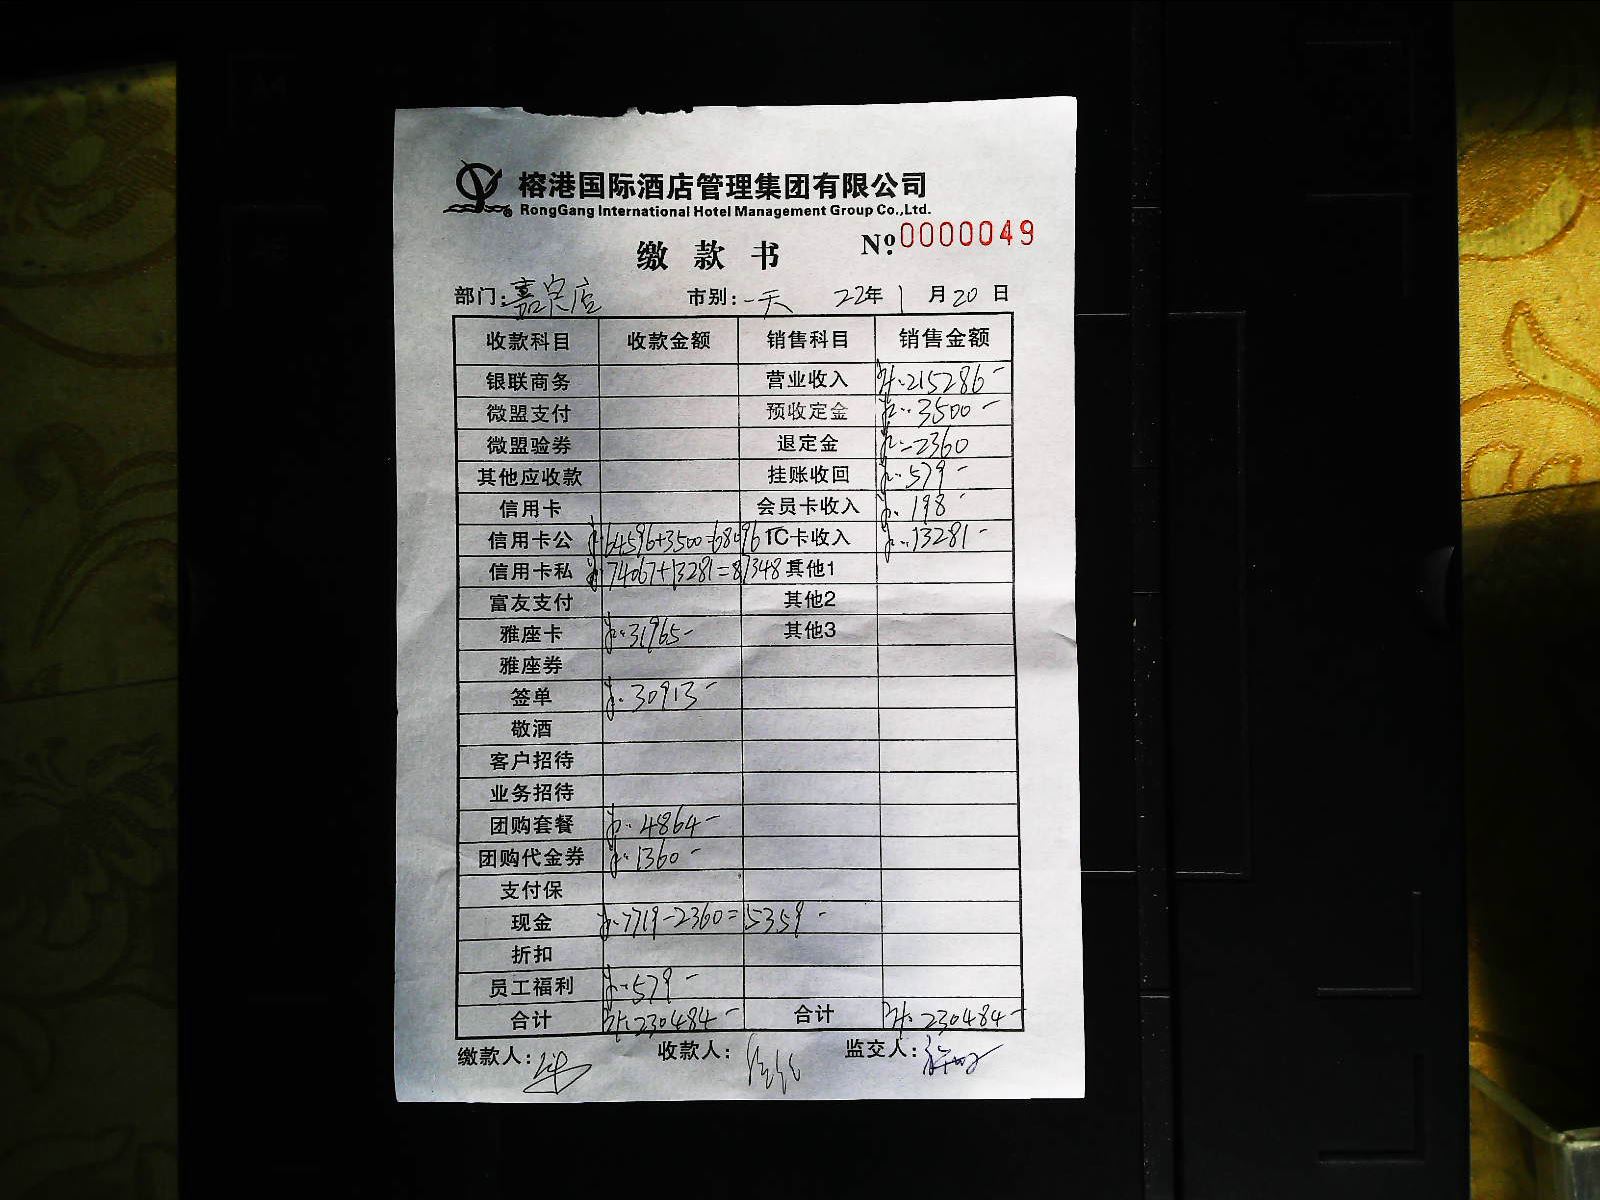 榕港国际酒店管理集团有限公司
RongGang International Hotel Management Group Co.,Ltd.
缴款书 №:0000049
部门: 嘉宾店 市别: 一天 22年1月20日
收款科目 收款金额 销售科目 销售金额
银联商务 营业收入 ¥:215286-
微盟支付 预收定金 ¥:3500-
微盟验券 退定金 ¥:-2360
其他应收款 挂账收回 ¥:579-
信用卡 会员卡收入 ¥:198-
信用卡公 ¥:64596+3500=68096 TC卡收入 ¥:13281-
信用卡私 ¥:74067+13281=87348 其他1
富友支付 其他2
雅座卡 ¥:31965- 其他3
雅座券
签单 ¥:30913-
敬酒
客户招待
业务招待
团购套餐 ¥:4864-
团购代金券 ¥:1360-
支付保
现金 ¥:7719-2360=5359-
折扣
员工福利 ¥:579-
合计 ¥:230484- 合计 ¥:230484-
缴款人: 收款人: 监交人: